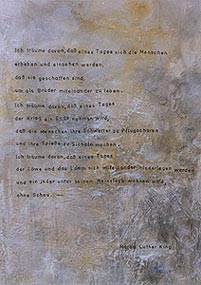 Ich träume davon, daß eines Tages sich die Menschen
erheben und einsehen werden,
daß sie geschaffen sind,
um als Brüder miteinander zu leben.
Ich träume davon, daß eines Tages
der Krieg ein Ende nehmen wird,
daß die Menschen ihre Schwerter zu Pflugscharen
und ihre Spieße zu Sicheln machen.
Ich träume davon, daß eines Tages
der Löwe und das Lamm sich miteinander niederlegen werden
und ein jeder unter seinem Weinstock wohnen wird
ohne Scheu.
Martin Luther King